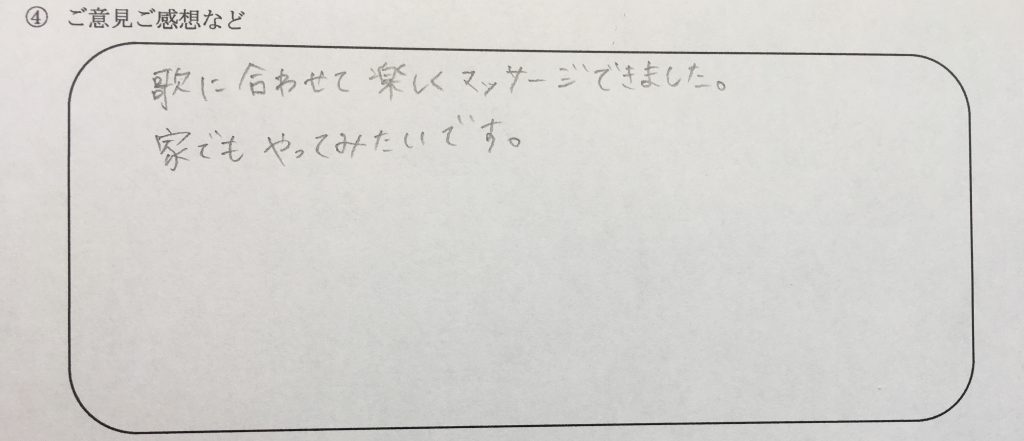 ④ ご意見ご感想など
歌に合わせて楽しくマッサージできました。
家でもやってみたいです。